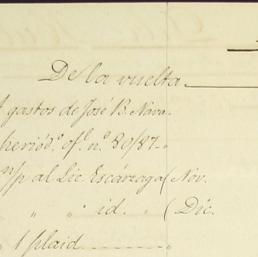 De la vuelta
gastos de José B. Nava.
periód.º of.l n.º 80/87.
m/p al Lic. Escárzaga (Nov.
„ „ id. „ (Dic.
„ 1 plaid